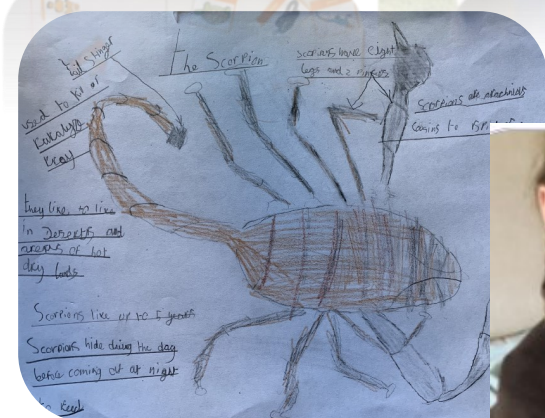 The Scorpion
tail stinger
used to kill or
Paralyse
Pray
scorpions have eight
legs and 2 pincers
Scorpions are arachnids
they like to live
in Deserts and
areas of hot
dry lands
Scorpions live up to 5 years
Scorpions hide during the day
before coming out at night